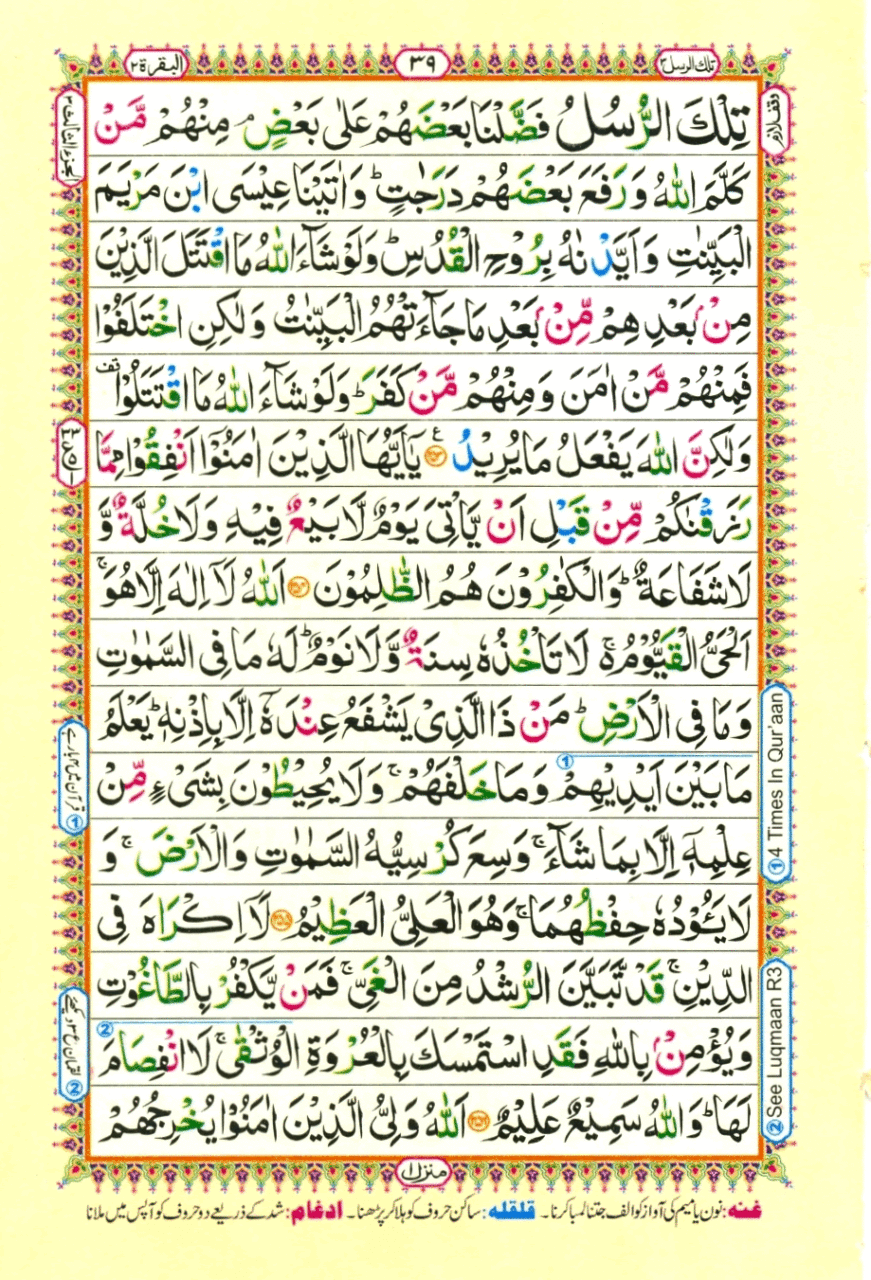 تلك الرسل ٣
٣٩
البقرة ٢
وقف لازم
الجزء الثالث ٣
تِلْكَ الرُّسُلُ فَضَّلْنَا بَعْضَهُمْ عَلٰى بَعْضٍ ۘ مِنْهُمْ مَّنْ
كَلَّمَ اللّٰهُ وَرَفَعَ بَعْضَهُمْ دَرَجٰتٍ ؕ وَاٰتَيْنَا عِيْسَى ابْنَ مَرْيَمَ
الْبَيِّنٰتِ وَاَيَّدْنٰهُ بِرُوْحِ الْقُدُسِ ؕ وَلَوْ شَآءَ اللّٰهُ مَا اقْتَتَلَ الَّذِيْنَ
مِنْۢ بَعْدِهِمْ مِّنْۢ بَعْدِ مَا جَآءَتْهُمُ الْبَيِّنٰتُ وَلٰكِنِ اخْتَلَفُوْا
فَمِنْهُمْ مَّنْ اٰمَنَ وَمِنْهُمْ مَّنْ كَفَرَ ؕ وَلَوْ شَآءَ اللّٰهُ مَا اقْتَتَلُوْا قف
وَلٰكِنَّ اللّٰهَ يَفْعَلُ مَا يُرِيْدُ ﴿۲۵۳﴾ ع يٰٓاَيُّهَا الَّذِيْنَ اٰمَنُوْٓا اَنْفِقُوْا مِمَّا
رَزَقْنٰكُمْ مِّنْ قَبْلِ اَنْ يَّاْتِىَ يَوْمٌ لَّا بَيْعٌ فِيْهِ وَلَا خُلَّةٌ وَّ
لَا شَفَاعَةٌ ؕ وَالْكٰفِرُوْنَ هُمُ الظّٰلِمُوْنَ ﴿۲۵۴﴾ اَللّٰهُ لَآ اِلٰهَ اِلَّا هُوَ ۚ
اَلْحَىُّ الْقَيُّوْمُ ۚ لَا تَاْخُذُهٗ سِنَةٌ وَّلَا نَوْمٌ ؕ لَهٗ مَا فِى السَّمٰوٰتِ
وَمَا فِى الْاَرْضِ ؕ مَنْ ذَا الَّذِىْ يَشْفَعُ عِنْدَهٗٓ اِلَّا بِاِذْنِهٖ ؕ يَعْلَمُ
مَا بَيْنَ اَيْدِيْهِمْ ① وَمَا خَلْفَهُمْ ۚ وَلَا يُحِيْطُوْنَ بِشَىْءٍ مِّنْ
عِلْمِهٖٓ اِلَّا بِمَا شَآءَ ۚ وَسِعَ كُرْسِيُّهُ السَّمٰوٰتِ وَالْاَرْضَ ۚ وَ
لَا يَـُٔوْدُهٗ حِفْظُهُمَا ۚ وَهُوَ الْعَلِىُّ الْعَظِيْمُ ﴿۲۵۵﴾ لَآ اِكْرَاهَ فِى
الدِّيْنِ ۚ قَدْ تَّبَيَّنَ الرُّشْدُ مِنَ الْغَىِّ ۚ فَمَنْ يَّكْفُرْ بِالطَّاغُوْتِ
وَيُؤْمِنْۢ بِاللّٰهِ فَقَدِ اسْتَمْسَكَ بِالْعُرْوَةِ الْوُثْقٰى ② ۚ لَا انْفِصَامَ
لَهَا ؕ وَاللّٰهُ سَمِيْعٌ عَلِيْمٌ ﴿۲۵۶﴾ اَللّٰهُ وَلِىُّ الَّذِيْنَ اٰمَنُوْا يُخْرِجُهُمْ
① 4 Times In Qur'aan
② See Luqmaan R3
① قرآن میں ۴ بار ہے
② لقمان ع ۳ دیکھئے
منزل ۱
غنہ: نون یا میم کی آواز کو الف جتنا لمبا کرنا۔ قلقلہ: ساکن حروف کو ہلا کر پڑھنا۔ ادغام: شد کے ذریعے دو حروف کو آپس میں ملانا